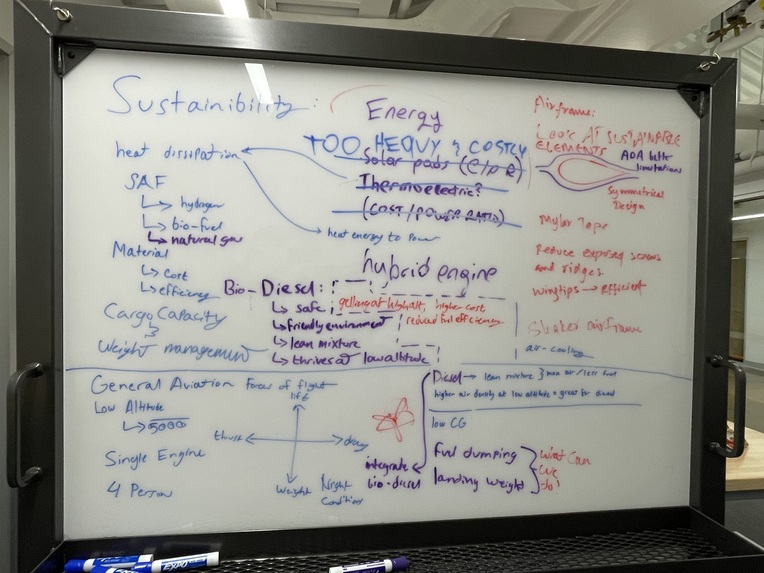 Sustainibility:
heat dissipation
SAF
hydrogen
bio-fuel
natural gas
Material
cost
efficiency
Cargo Capacity
&
Weight management
Energy
TOO HEAVY & COSTLY
Solar pads (C/P R)
Thermoelectric?
(COST/POWER RATIO)
heat energy to power
hybrid engine
Bio-Diesel:
safe
friendly environment
lean mixture
thrives at low altitude
gelling at high alt, higher cost
reduced fuel efficiency
Airframe:
LOOK AT SUSTAINABLE
ELEMENTS
AOA better
limitations
Symmetrical
Design
Mylar Tape
Reduce exposed screws
and ridges
wingtips → efficient
airframe
air-cooling
General Aviation
Low Altitude
5000
Single Engine
4 Person
Forces of flight
lift
thrust
drag
Weight
Night
Condition
Diesel → lean mixture } more air/less fuel
higher air density at low altitude = great for diesel
low CG
integrate
bio-diesel
fuel dumping
landing weight
What Can
We
do?
EXPO